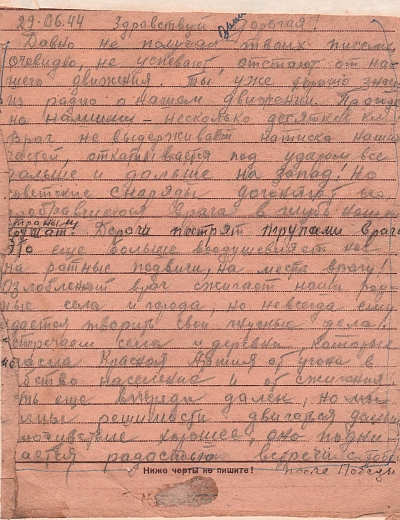 29.06.44 Здравствуй Дорогая!
Давно не получал твоих писем,
очевидно, не успевают, отстают от на-
шего движения. Ты уже хорошо знаешь
из радио о нашем движении. Пройде-
но нашими – несколько десятков
Враг не выдерживает натиска наших
частей, откатывается под ударом все
дальше и дальше на запад. Но
советские снаряды догоняют его,
врага в глубь
Дороги пестрят трупами врага
Это еще больше воодушевляет
на ратные подвиги, на месть врагу!
Озлобленный враг сжигает наши род-
ные села и города, но не всегда ему
удается творить свои гнусные дела!
Встречаем села и деревни, которые
спасла Красная Армия от угона в
рабство население и от сжигания
Путь еще впереди далек, но мы
полны решимости двигаться дальше
самочувствие хорошее, оно подни-
мается радостью встречи с тобой
после Победы
Ниже черты не пишите!